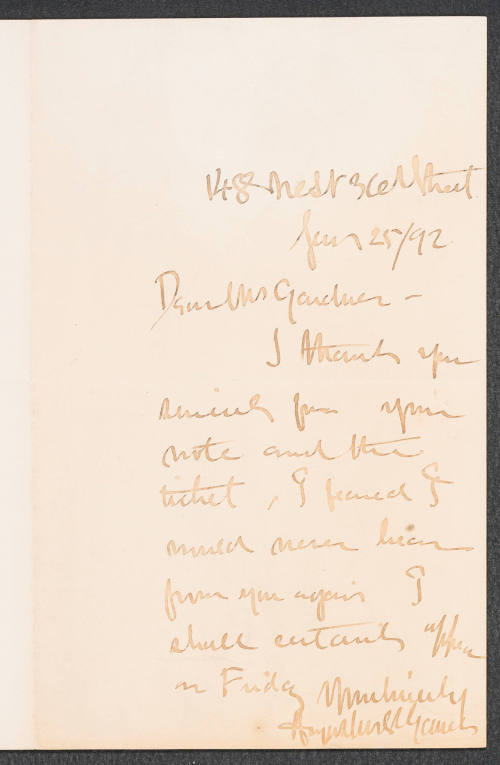 148 West 36th Street
Jany 25/92
Dear Mrs Gardner -
I thank you
sincerely for your
note and the
ticket, I feared I
would never hear
from you again I
shall certainly appear
on Friday Yours sincerely